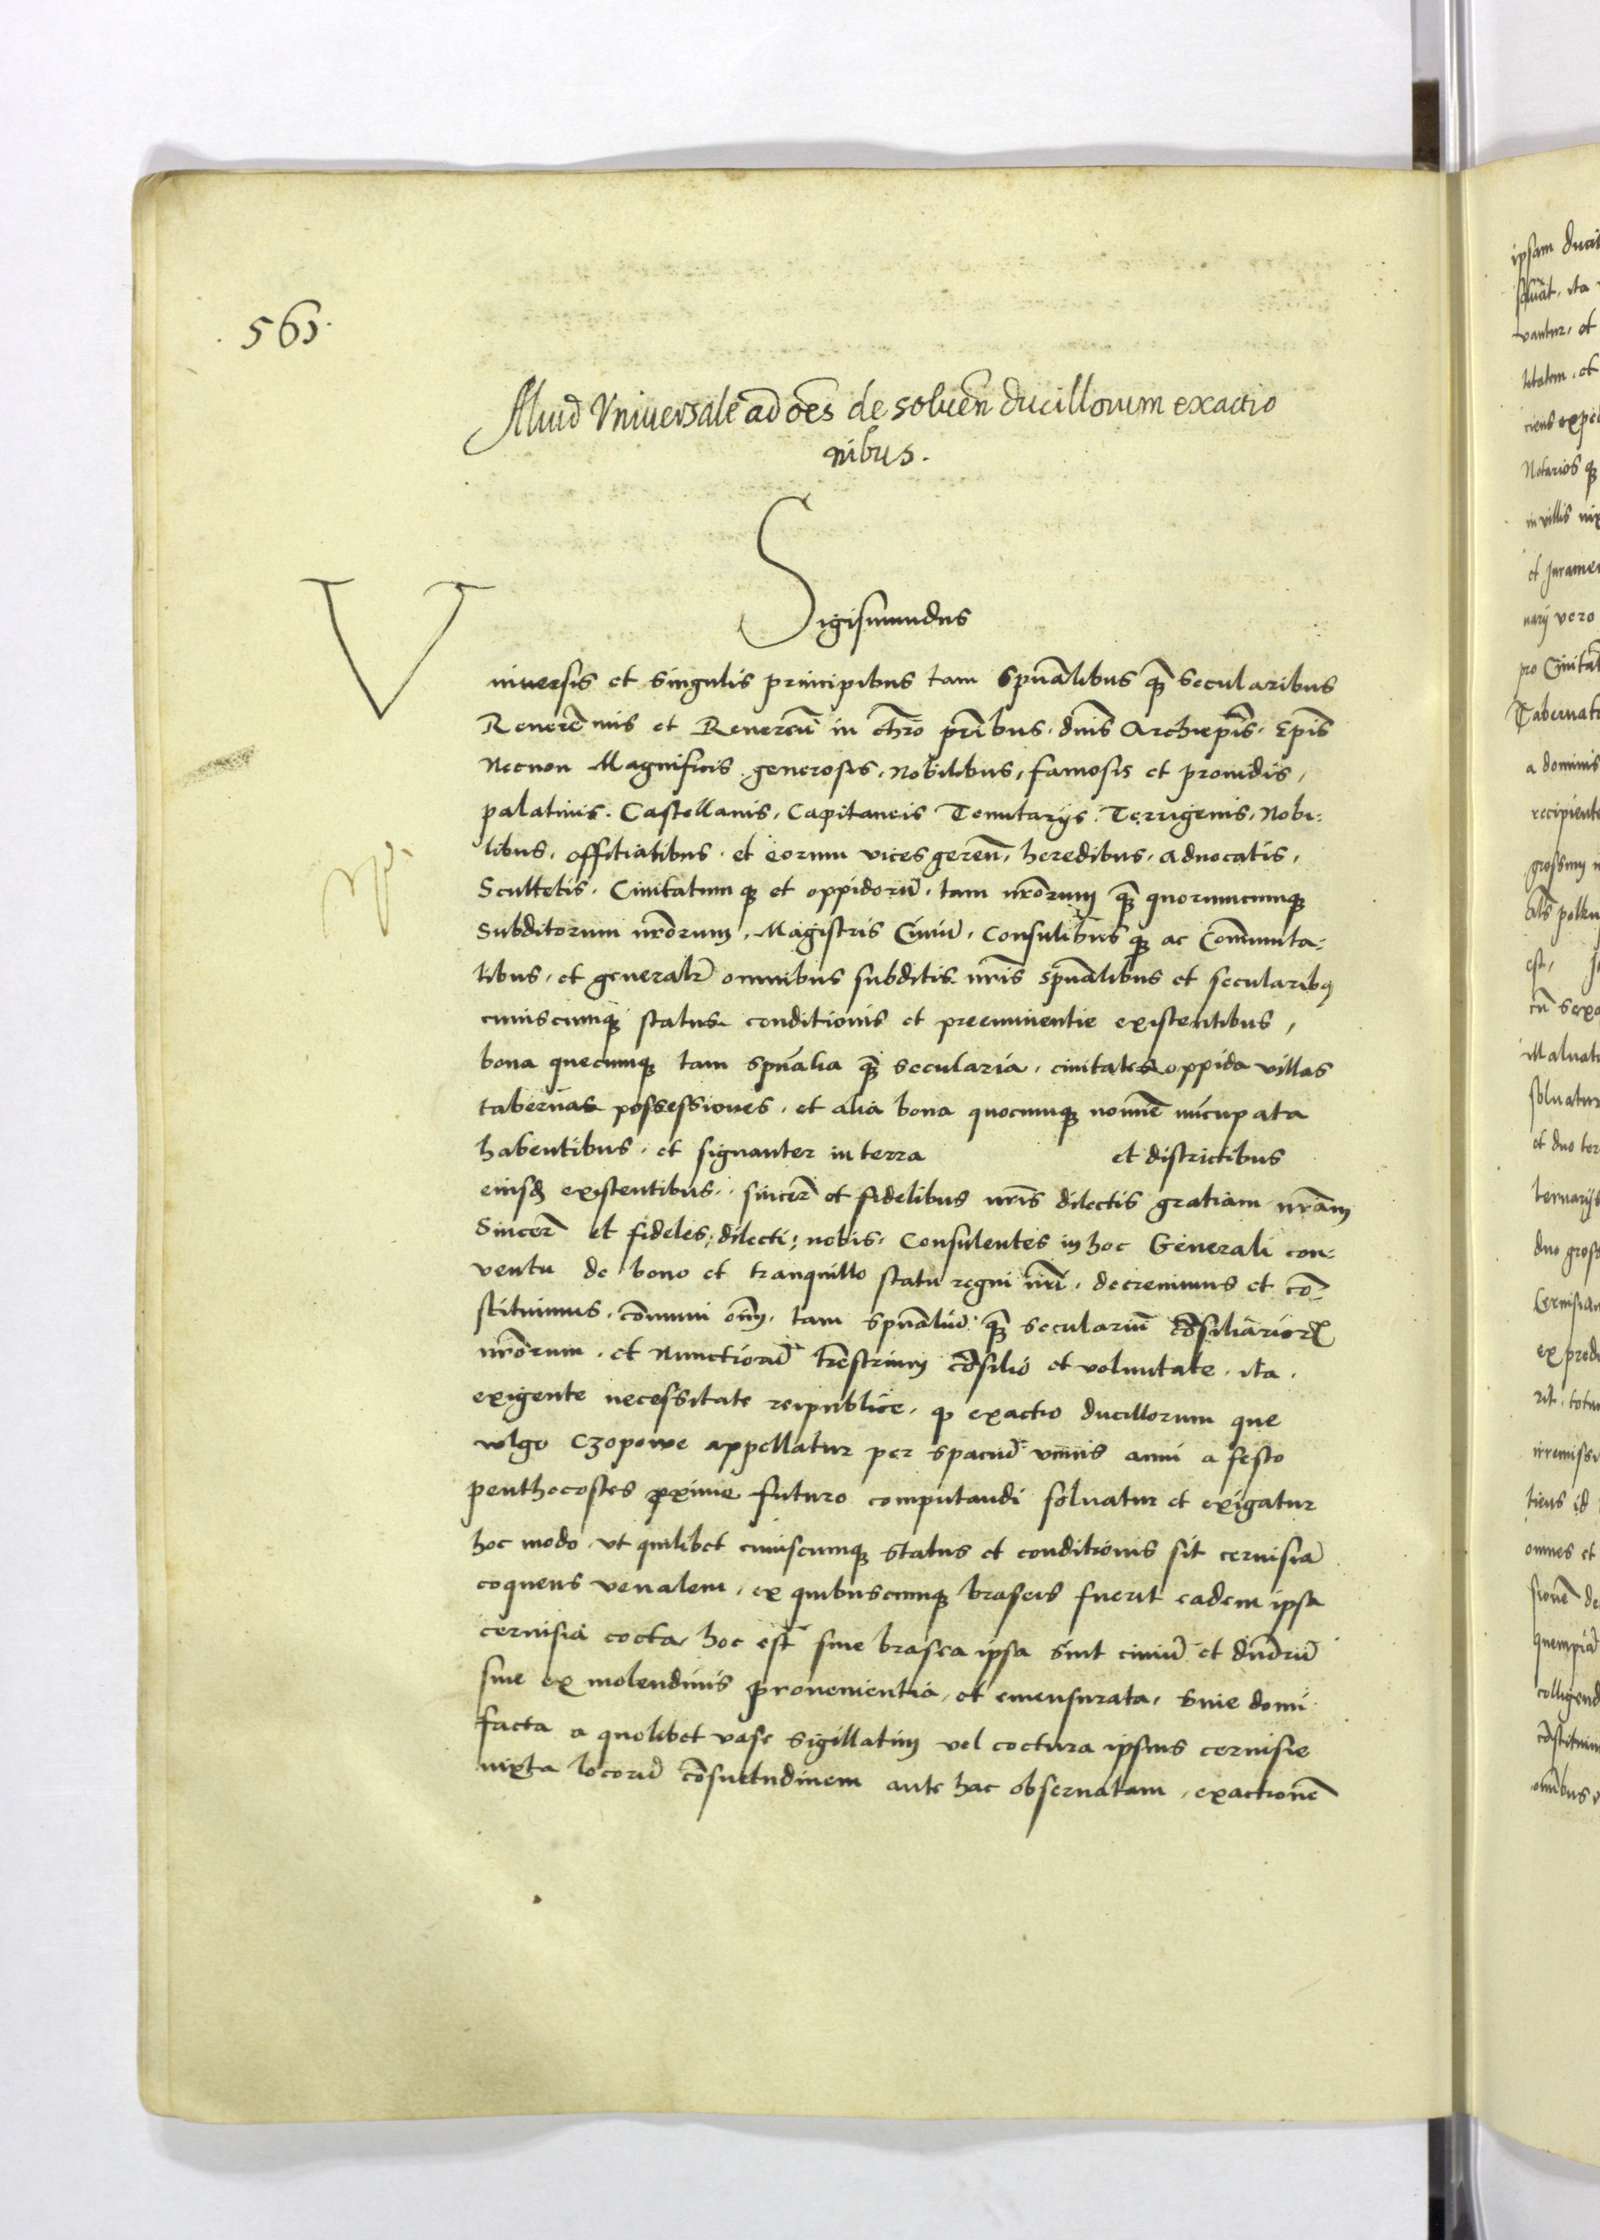 561.
Aliud Vniuersale ad oẽs de soluen̄ ducillorum exactio
nibus.
Sigismundus
Vniuersis et singulis principibus tam spũalibus q̃ secularibus
Reuerẽ mis et Reuereñ in chr̃o pr̃ibus. dñis Archiep̃is. Ep̃is
Necnon Magnificis generosis, Nobilibus, famosis et prouidis,
palatinis. Castellanis, Capitaneis Tenutarijs. Terrigenis, Nobi:
libus, offitialibus. et eorum vices gereñ, heredibus, aduocatis,
Scultetis. Ciuitatumqꝫ et oppidorũ. tam nr̃orum q̃ quorumcumqꝫ
subditorum nr̃orum, Magistris Ciuiũ, Consulibusqꝫ ac Com̃unita:
tibus, et generalr̃ omnibus subditis nr̃is spũalibus et secularibꝰ
cuiuscumqꝫ status conditionis et preeminentie existentibus,
bona quecumqꝫ tam spũalia q̃ secularia, ciuitates oppida villas
tabernas possessiones, et alia bona quocumqꝫ nomĩe nũcupata
habentibus, et signanter in terra et districtibus
eiusdꝫ existentibus. sincerẽ et fidelibus nr̃is dilectis gratiam nr̃am
Sincerẽ et fideles, dilecti, nobis. Consulentes in hoc Generali con:
ventu de bono et tranquillo statu regni nr̃i, decreuimus et cõ-
stituimus, cõmuni oĩm, tam spũaliũ q̃ seculariũ cõsiliarioꝝ
nr̃orum, et Nunctiorũ tr̃estrium cõsilio et voluntate, ita
exigente necessitate reipublice, ꝙ exactio ducillorum que
vulgo Czopowe appellatur per spaciũ vnius anni a festo
penthecostes ꝓxime futuro computandi soluatur et exigatur
hoc modo. vt quilibet cuiuscumqꝫ status et conditionis sit ceruisiã
coquens venalem, ex quibuscumqꝫ braseis fuerit eadem ipsa
ceruisia cocta, hoc est siue brasea ipsa sint ciuiũ et dñorũ
siue ex molendinis prouenientia, et emensurata, siue domi
facta a quolibet vase sigillatim vel coctura ipsius ceruisie
iuxta locorũ cõsuetudinem ante hac obseruatam, exactionẽ